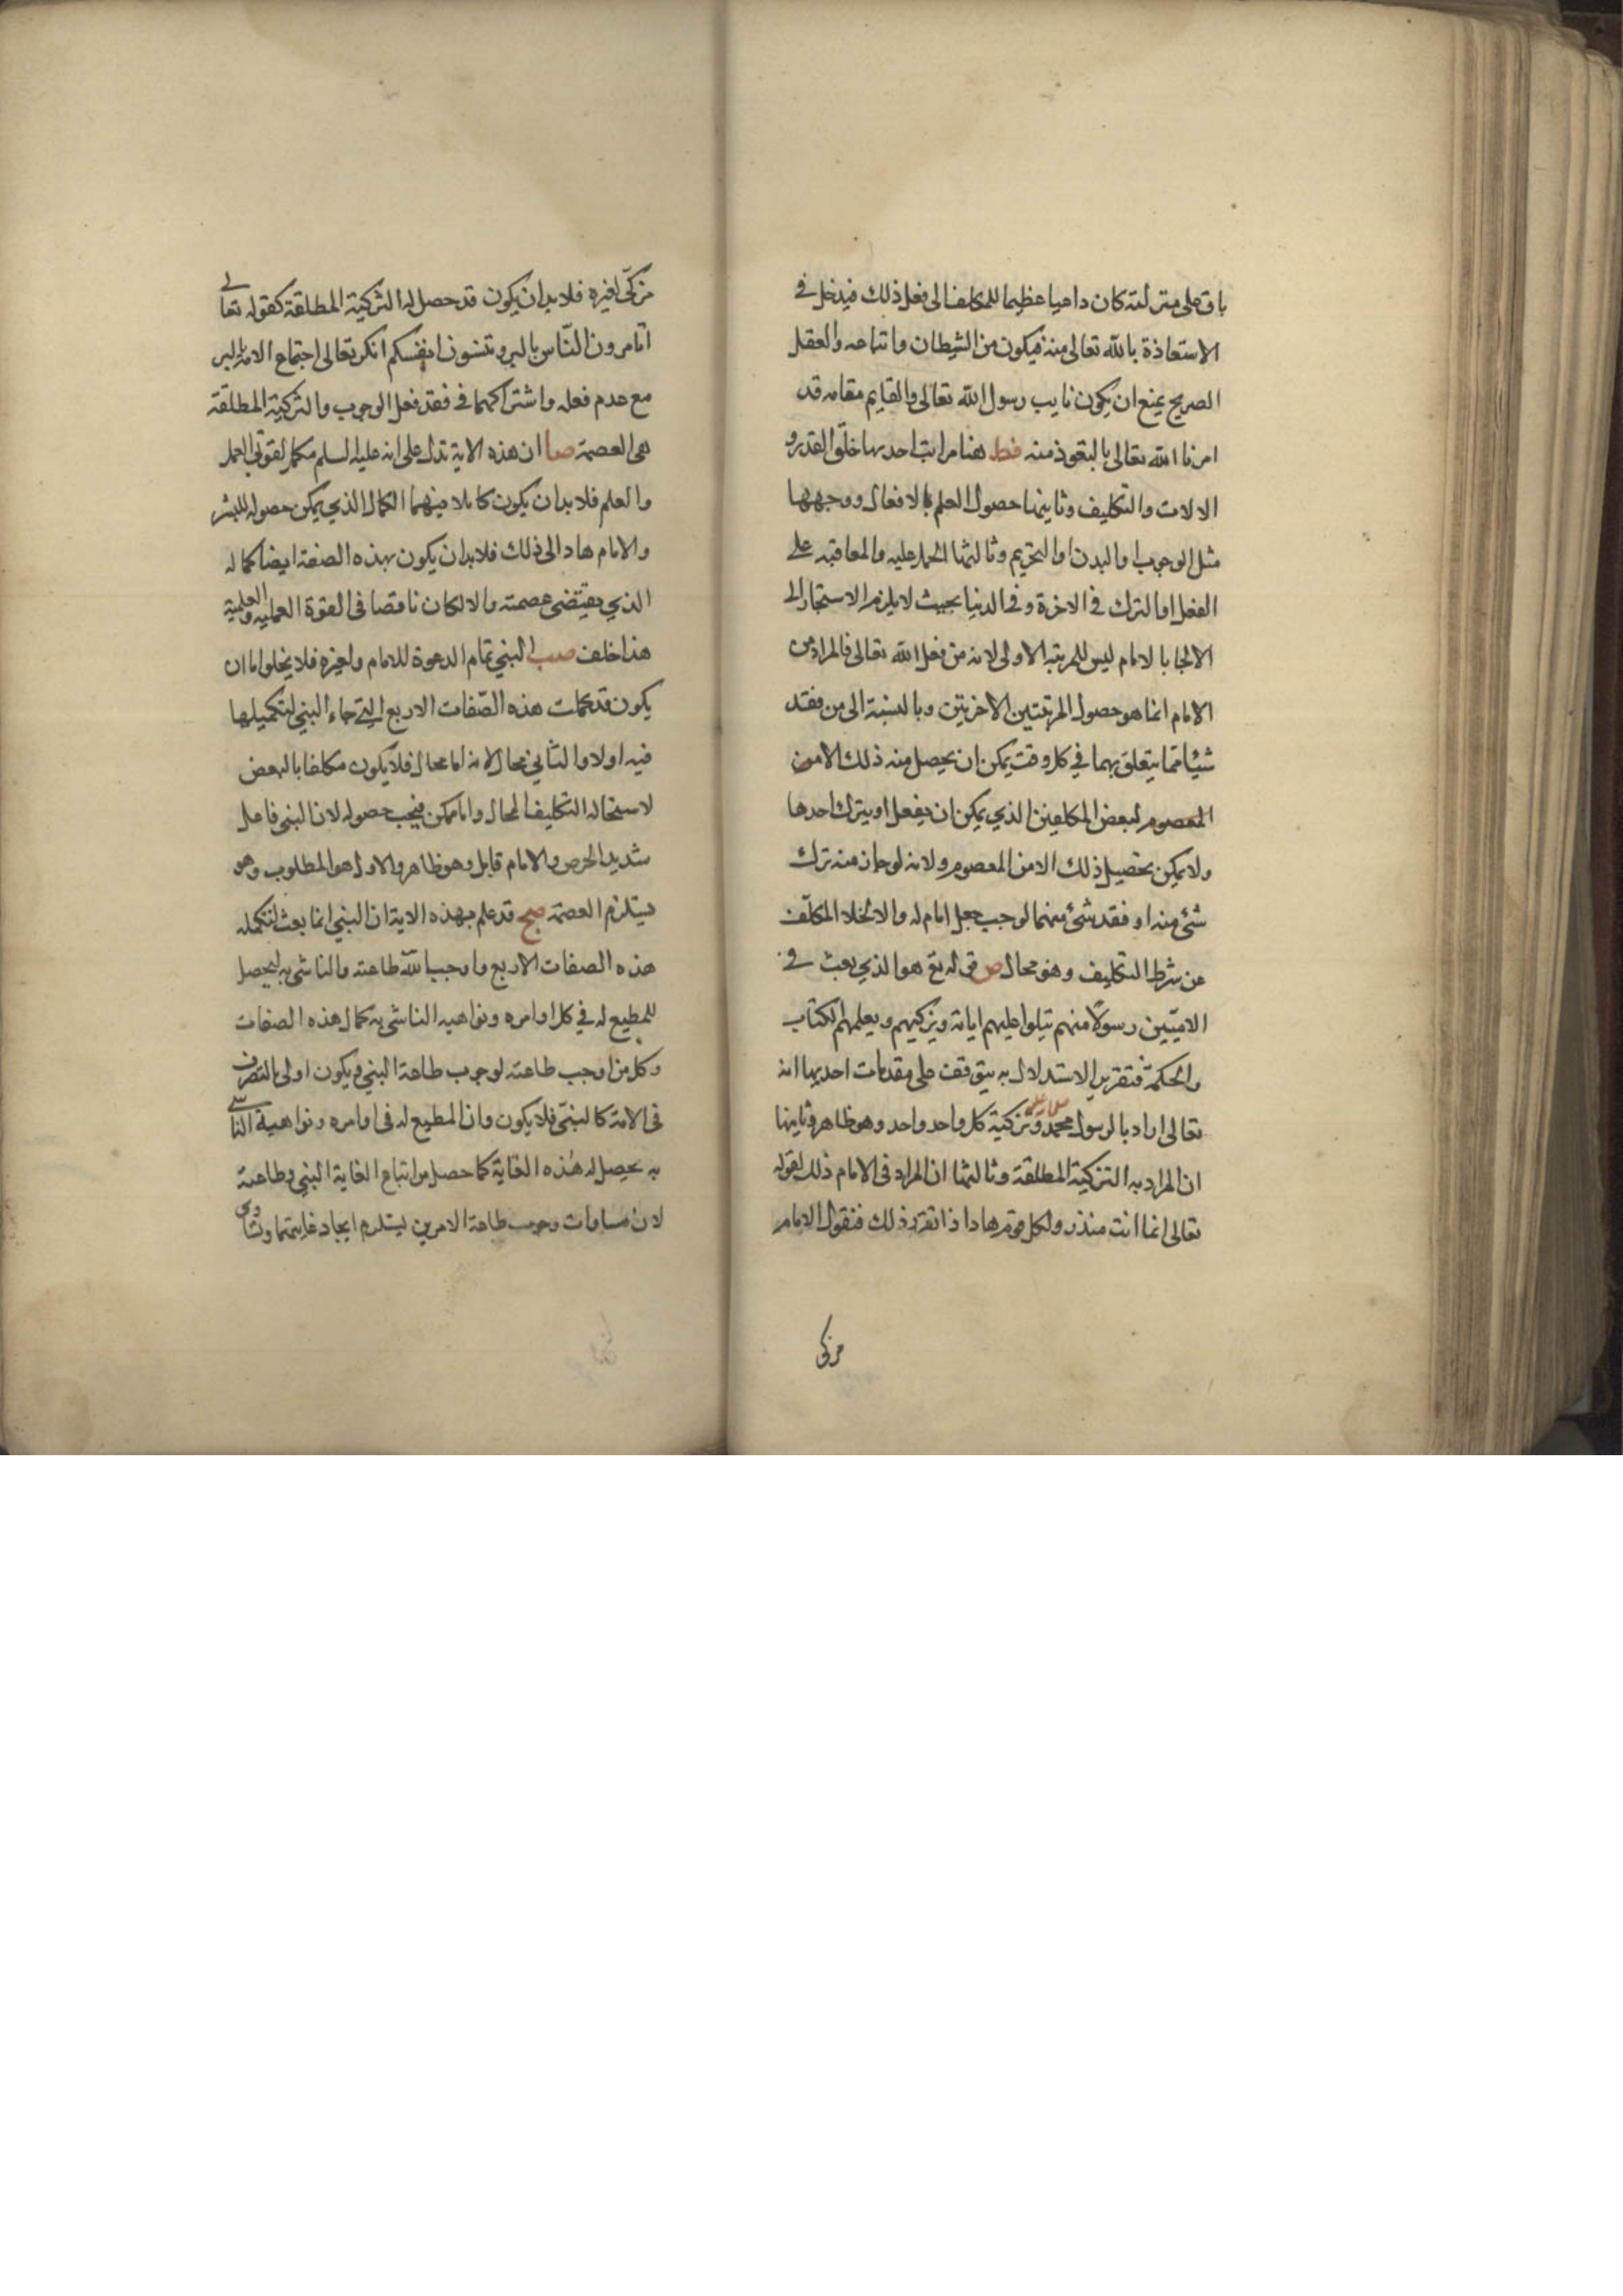 باق على منزلته كان داعيا عظيما للمكلف الى فعل ذلك فيدخل في
الاستعاذة بالله تعالى منه فيكون من الشيطان واتباعه والعقل
الصريح يمنع ان يكون نايب رسول الله تعالى والقايم مقامه قد
امرنا الله تعالى بالتعوذ منه فط هنا مراتب احديها خلق القدر و
الالات والتكليف وثانيها حصول العلم بالافعال ووجهها
مثل الوجوب او الندب او التحريم وثالثها الحمل عليه والمعاقبه على
الفعل او الترك في الاخرة وفي الدنيا بحيث لا يلزم الاستجار الى
الالجا بالامام ليس للمرتبه الاولى لانه من فعل الله تعالى فالمراد من
الامام انما هو حصول المرتبتين الاخرتين وبالنسبة الى من فقد
شيئا مما يتعلق بهما في كل وقت يمكن ان يحصل منه ذلك الا من
المعصوم لبعض المكلفين الذي يمكن ان يفعل او يترك احدها
ولا يمكن تحصيل ذلك الا من المعصوم ولانه لو جاز منه ترك
شئ منه او فقد شئ منهما لوجب جعل امام له والا لخلا المكلف
عن شرط التكليف وهو محال ص قوله تع هو الذي بعث في
الاميين رسولا منهم يتلوا عليهم اياته ويزكيهم ويعلمهم الكتاب
والحكمة فتقرير الاستدلال به يتوقف على مقدمات احديها انه
تعالى اراد بالرسول محمد وتزكية كل واحد واحد وهو ظاهر وثانيها
ان المراد به التزكية المطلقة وثالثها ان المراد في الامام ذلك لقوله
تعالى انما انت منذر ولكل قوم هاد اذا تقرر ذلك فنقول الامام
مزكى
مزكى لغيره فلا بد ان يكون قد حصل له التزكية المطلقة كقوله تعالى
اتامرون الناس بالبر وتنسون انفسكم انكر تعالى اجتماع الامر بالبر
مع عدم فعله واشتراكهما في فقد فعل الوجوب والتزكية المطلقة
هي العصمة صا ان هذه الاية تدل على انه عليه السلم مكمل لقوتي العمل
والعلم فلا بد ان يكون كاملا فيهما الكمال الذي يمكن حصوله للبشر
والامام هاد الى ذلك فلا بد ان يكون بهذه الصفة ايضا كماله
الذي يقتضى عصمته والا لكان ناقصا في القوة العمليه والعلمية
هذا خلف صب النبي تمام الدعوة للامام ولغيره فلا يخلوا اما ان
يكون قد كملت هذه الصفات الاربع التي جاء النبي لتكميلها
فيه اولا والثاني محال لانه اما محال فلا يكون مكلفا بالبعض
لاستحاله التكليف المحال واما ممكن فيجب حصوله لان النبي فاعل
شديد الحرص والامام قابل وهو ظاهر والاول هو المطلوب وهو
يستلزم العصمة صج قد علم بهذه الاية ان النبي انما بعث لتكمله
هذه الصفات الاربع واوجب الله طاعته والناشى به ليحصل
للمطيع له في كل اوامره ونواهيه الناشى به كمال هذه الصفات
وكل من اوجب طاعته لوجوب طاعة النبي ويكون اولى بالتصرف
في الامة كالنبي فلا يكون وان المطيع له في اوامره ونواهية الناسى
به يحصل له هذه الغاية كما حصل من اتباع الغاية النبي وطاعته
لان مساوات وجوب طاعة الامرين يستلزم ايجاد غايتهما وتساوى